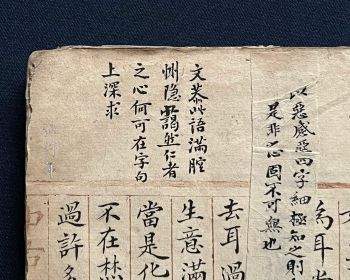 以惡感惡四字細極知之則
是非之心固不可無也
文恭此語滿腔
惻隐靄然仁者
之心何可在字句
上深求
為耳
去耳過
生意滿
當是化
不在焚
過許多